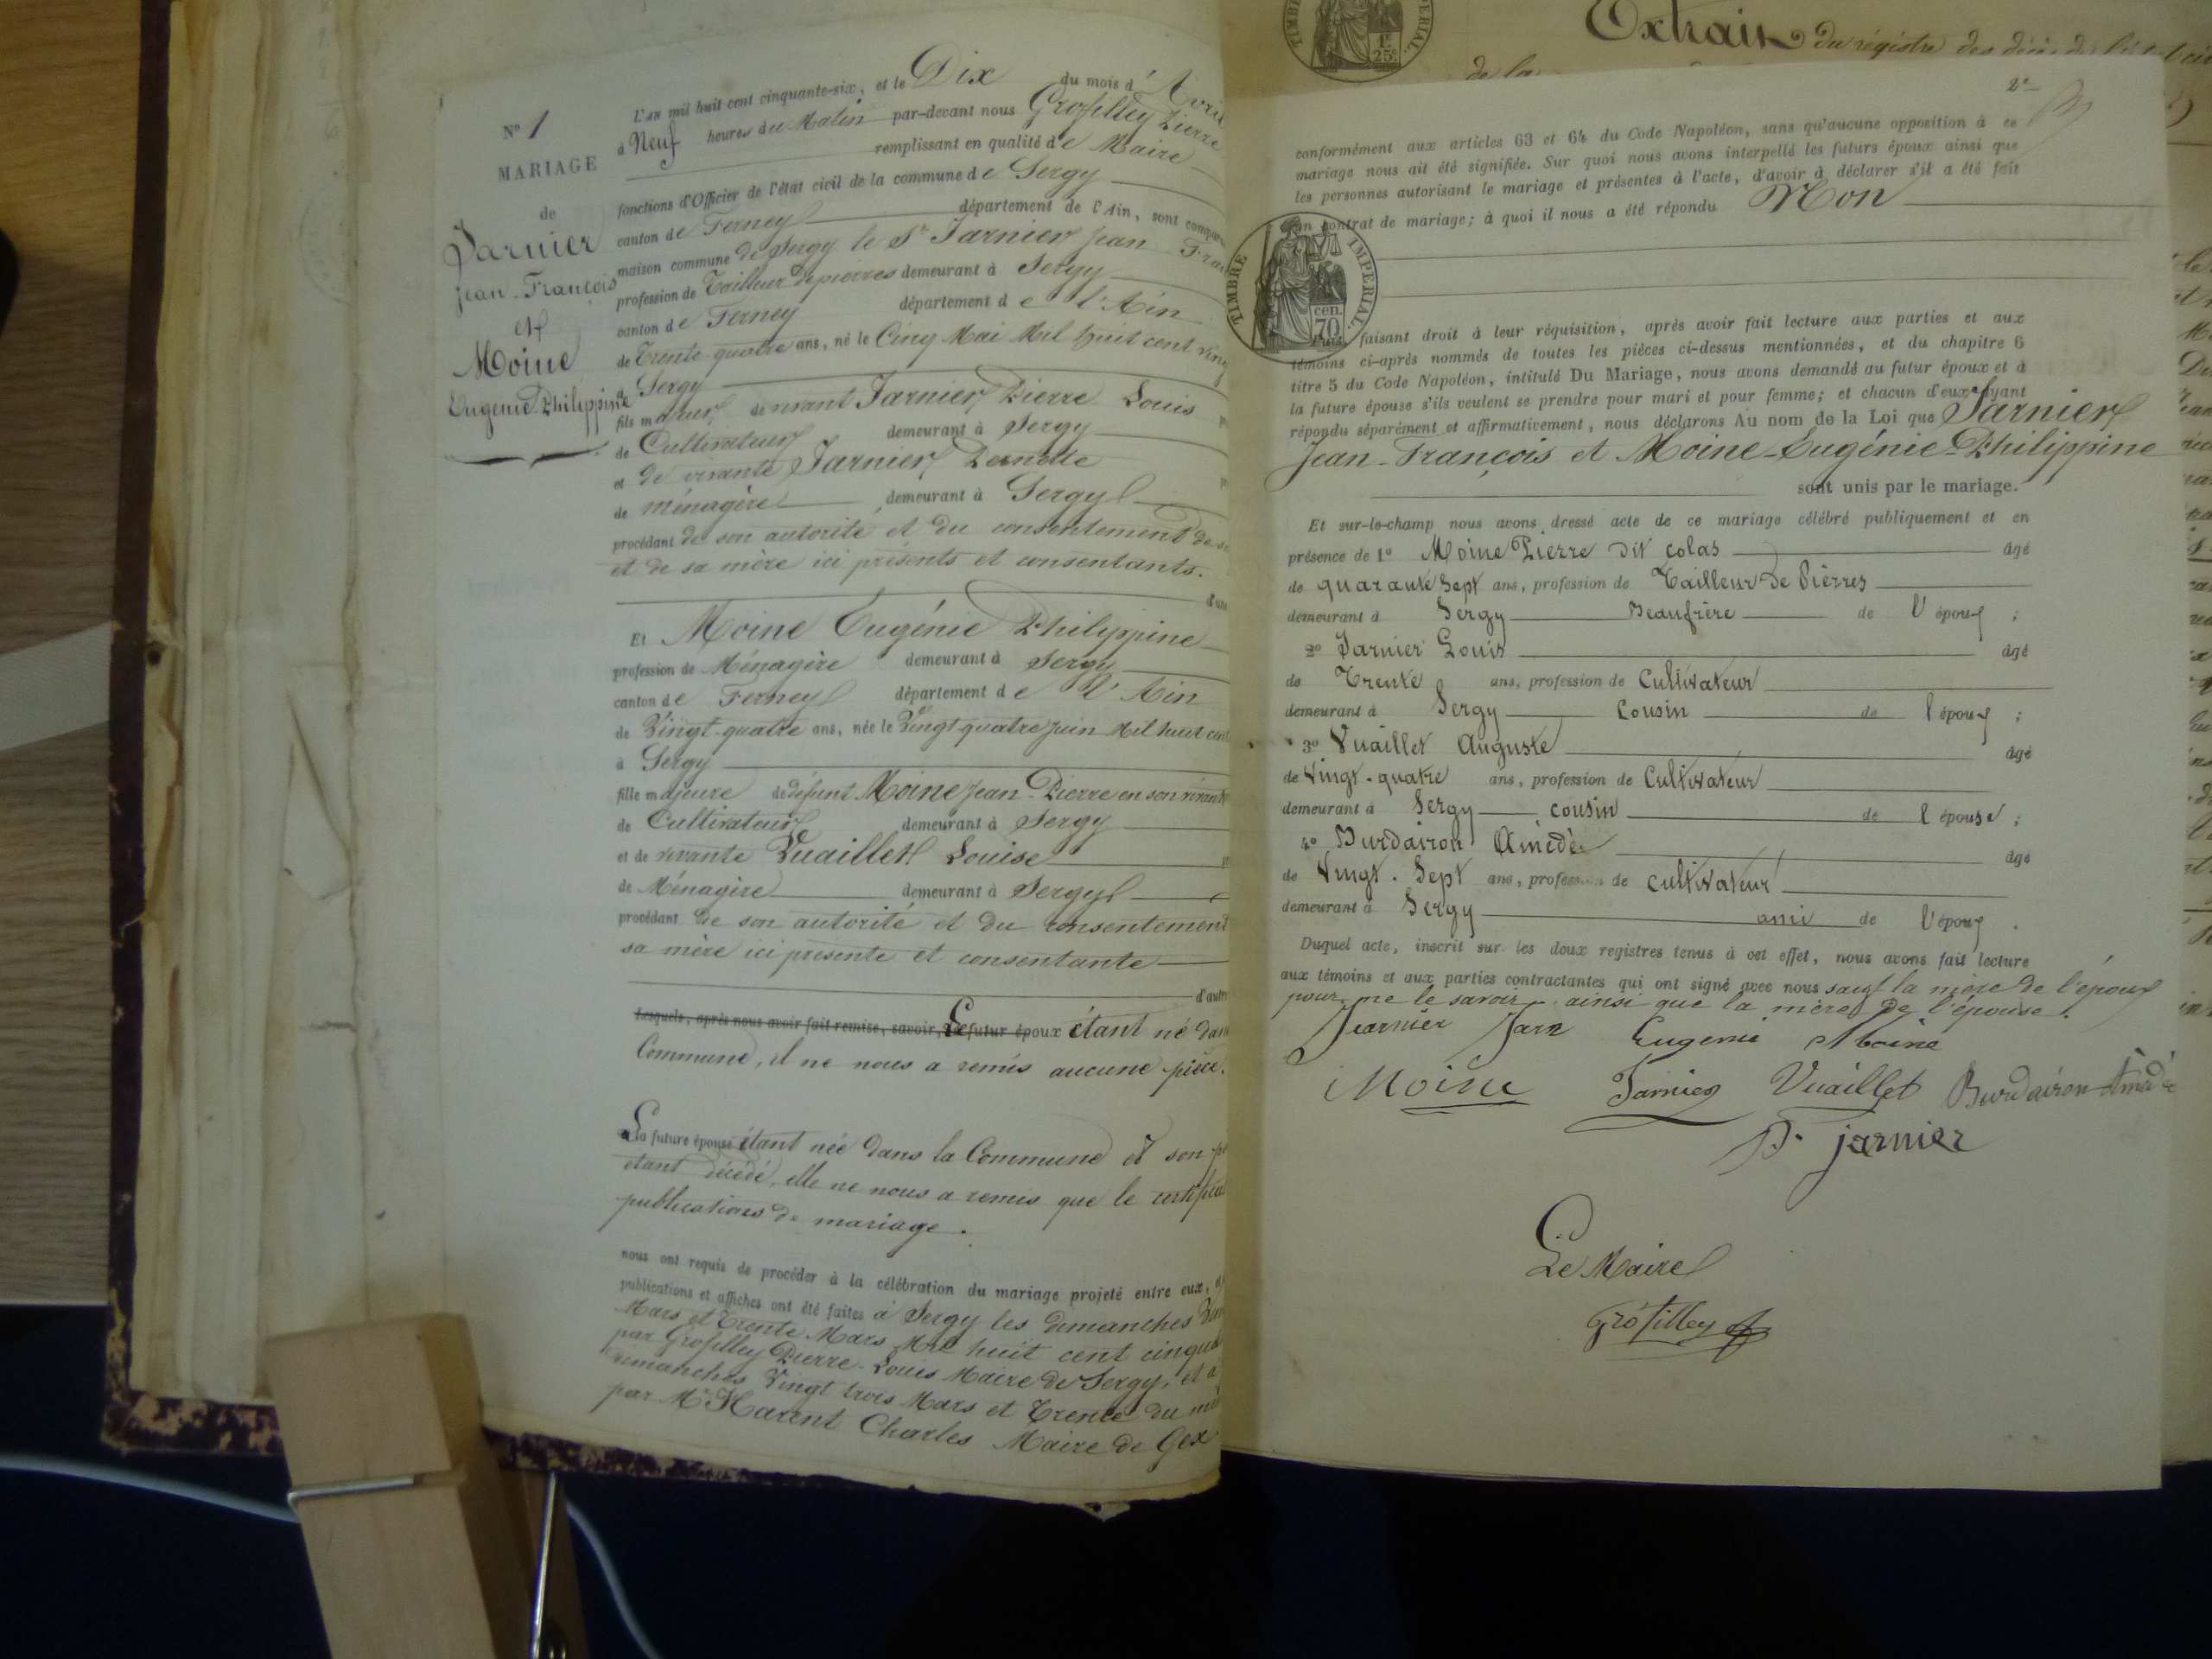 N° 1
MARIAGE
de
Jarnier
Jean-François
et
Moine
Eugénie-Philippine
L'an mil huit cent cinquante-six, et le Dix du mois d'Avril
à Neuf heures du Matin par-devant nous Grosfilley Pierre
remplissant en qualité de Maire
fonctions d'Officier de l'état civil de la commune de Sergy
canton de Ferney département de l'Ain, sont
maison commune de Sergy le Sr Jarnier Jean
profession de Tailleur de pierres demeurant à Sergy
canton de Ferney département de l'Ain
de Trente-quatre ans, né le Cinq Mai Mil huit cent
à Sergy
fils majeur de vivant Jarnier Pierre Louis
de Cultivateur demeurant à Sergy
et de vivante Jarnier Pernette
de ménagère demeurant à Sergy
procédant de son autorité et du consentement de
et de sa mère ici présents et consentants.
Et Moine Eugénie Philippine
profession de Ménagère demeurant à Sergy
canton de Ferney département de l'Ain
de Vingt-quatre ans, née le Vingt-quatre Juin Mil huit
à Sergy
fille majeure de défunt Moine Jean-Pierre en son vivant
de Cultivateur demeurant à Sergy
et de vivante Vuaillet Louise
de Ménagère demeurant à Sergy
procédant de son autorité et du consentement
sa mère ici présente et consentante
Lesquels, après nous avoir fait remise, savoir, Le futur époux étant né
Commune, il ne nous a remis aucune pièce.
La future épouse étant née dans la Commune et son
étant décédé, elle ne nous a remis que le
publications de mariage.
nous ont requis de procéder à la célébration du mariage projeté entre eux,
publications et affiches ont été faites à Sergy les dimanches
Mars et Trente Mars Mil huit cent
par Grosfilley Pierre-Louis Maire de Sergy, et à
dimanches Vingt trois Mars et Trente du
par Mr Harent Charles Maire de Gex
Extrait du régistre des décès
de la
TIMBRE IMPERIAL
1F.
25c
2e
conformément aux articles 63 et 64 du Code Napoléon, sans qu'aucune opposition à ce
mariage nous ait été signifiée. Sur quoi nous avons interpellé les futurs époux ainsi que
les personnes autorisant le mariage et présentes à l'acte, d'avoir à déclarer s'il a été fait
un contrat de mariage; à quoi il nous a été répondu Non
TIMBRE IMPERIAL.
cen.
70
faisant droit à leur réquisition, après avoir fait lecture aux parties et aux
témoins ci-après nommés de toutes les pièces ci-dessus mentionnées, et du chapitre 6
titre 5 du Code Napoléon, intitulé Du Mariage, nous avons demandé au futur époux et à
la future épouse s'ils veulent se prendre pour mari et pour femme; et chacun d'eux ayant
répondu séparément et affirmativement, nous déclarons Au nom de la Loi que Jarnier
Jean-François et Moine-Eugénie-Philippine
sont unis par le mariage.
Et sur-le-champ nous avons dressé acte de ce mariage célébré publiquement et en
présence de 1° Moine Pierre dit Colas âgé
de quarante Sept ans, profession de Tailleur de Pierres
demeurant à Sergy Beaufrère de l'époux ;
2° Jarnier Louis âgé
de Trente ans, profession de Cultivateur
demeurant à Sergy Cousin de l'époux ;
3° Vuaillet Auguste âgé
de Vingt-quatre ans, profession de Cultivateur
demeurant à Sergy cousin de l'épouse ;
4° Burdairon Amédé âgé
de Vingt-Sept ans, profession de cultivateur
demeurant à Sergy ami de l'époux .
Duquel acte, inscrit sur les deux registres tenus à cet effet, nous avons fait lecture
aux témoins et aux parties contractantes qui ont signé avec nous sauf la mère de l'époux
pour ne le savoir, ainsi que la mère de l'épouse.
Jarnier Jean Eugenie Moine
Moine Jarnier Vuaillet Burdairon Amédé
P. jarnier
Le Maire
Grosfilley